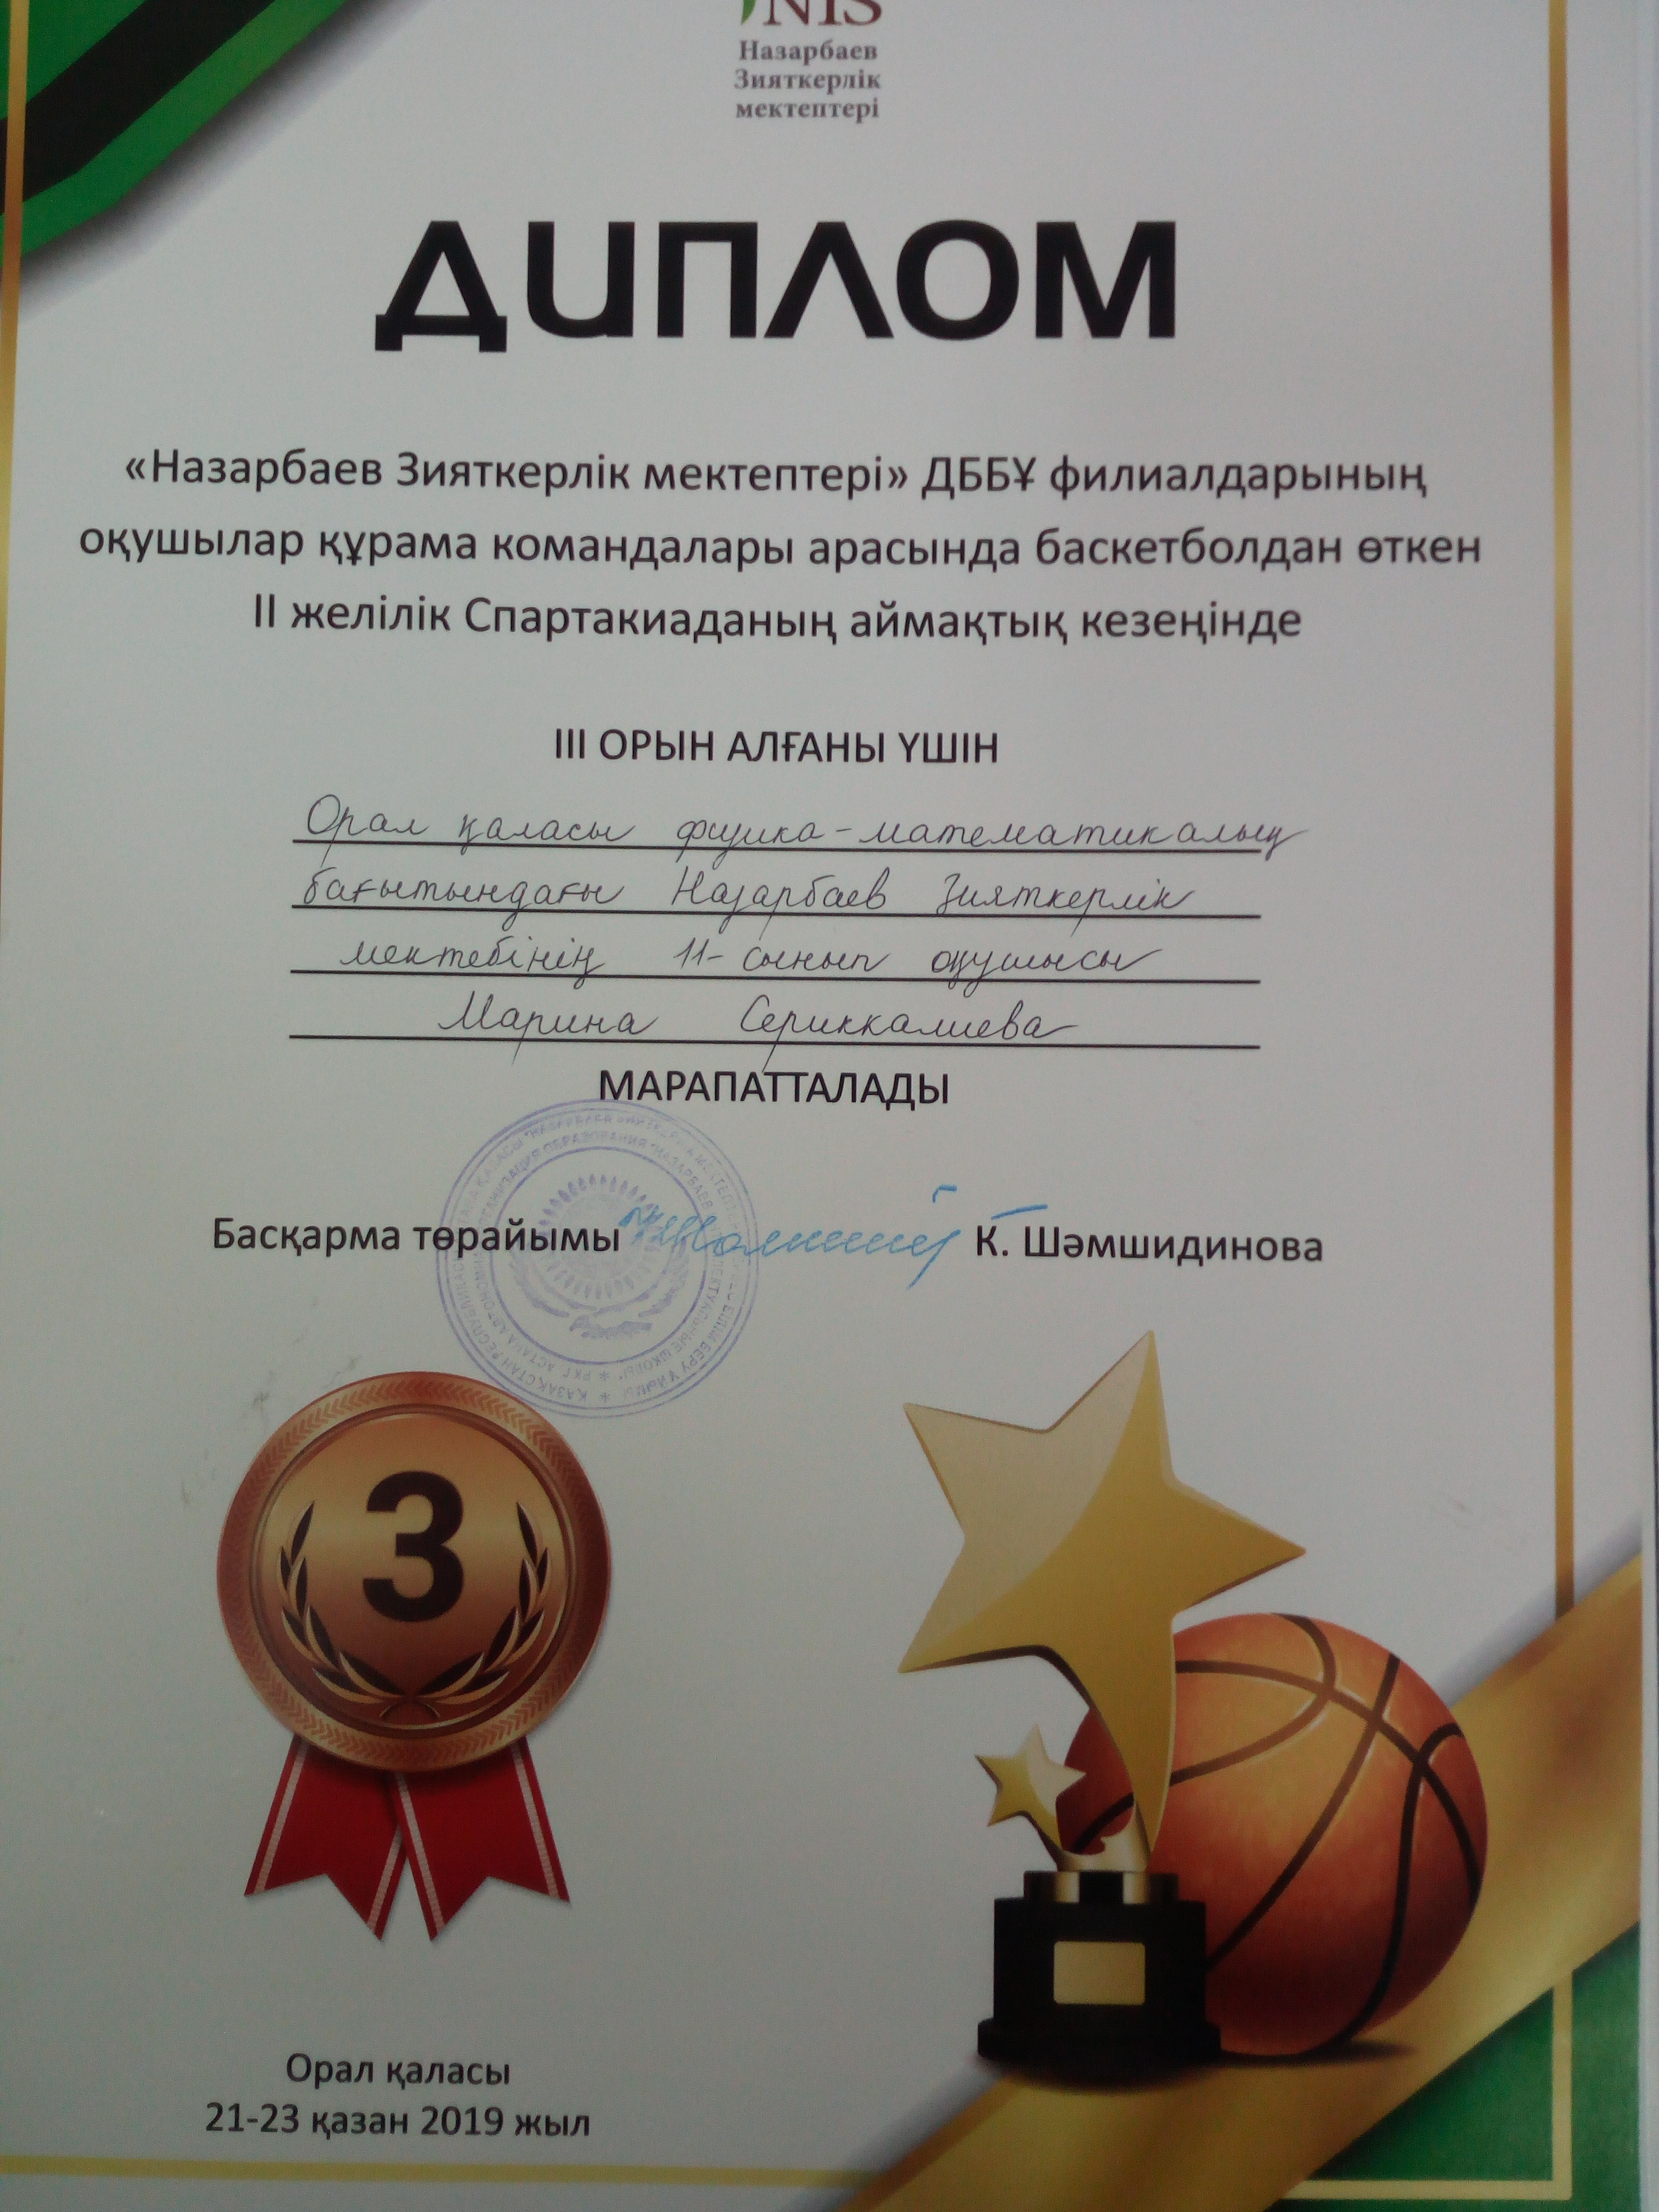 NIS
Назарбаев
Зияткерлік
мектептері
ДИПЛОМ
«Назарбаев Зияткерлік мектептері» ДББҰ филиалдарының
оқушылар құрама командалары арасында баскетболдан өткен
II желілік Спартакиаданың аймақтық кезеңінде
III ОРЫН АЛҒАНЫ ҮШІН
Орал қаласы физика-математикалық
бағытындағы Назарбаев Зияткерлік
мектебінің 11-сынып оқушысы
Марина Сериккалиева
МАРАПАТТАЛАДЫ
Басқарма төрайымы К. Шәмшидинова
3
Орал қаласы
21-23 қазан 2019 жыл